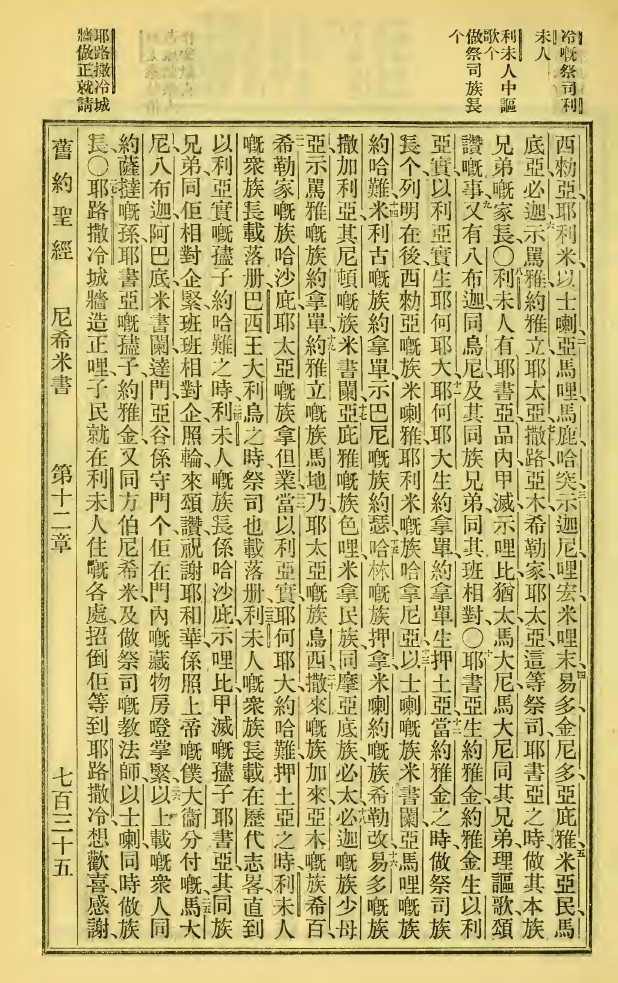 冷嘅祭司利
未人
利未人中謳
歌个
做祭司族長
个
耶路撒冷城
牆做正就請
西勑亞耶利米以士喇亞馬哩馬鹿哈突示迦尼哩宏米哩末易多金尼多亞庇雅米亞民馬
底亞必迦示罵雅約雅立耶太亞撒路亞木希勒家耶太亞這等祭司耶書亞之時做其本族
兄弟嘅家長〇利未人有耶書亞品內甲滅示哩比猶太馬大尼馬大尼同其兄弟理謳歌頌
讚嘅事又有八布迦同烏尼及其同族兄弟同其班相對〇耶書亞生約雅金約雅金生以利
亞實以利亞實生耶何耶大耶何耶大生約拿單約拿單生押土亞當約雅金之時做祭司族
長个列明在後西勑亞嘅族米喇雅耶利米嘅族哈拿尼亞以士喇嘅族米書蘭亞馬哩嘅族
約哈難米利古嘅族約拿單示巴尼嘅族約瑟哈林嘅族押拿米喇約嘅族希勒改易多嘅族
撒加利亞其尼頓嘅族米書蘭亞庇雅嘅族色哩米拿民族同摩亞底族必太必迦嘅族少母
亞示罵雅嘅族約拿單約雅立嘅族馬地乃耶太亞嘅族烏西撒來嘅族加來亞木嘅族希百
希勒家嘅族哈沙庇耶太亞嘅族拿但業當以利亞實耶何耶大約哈難押土亞之時利未人
嘅衆族長載落册巴西王大利烏之時祭司也載落册利未人嘅衆族長載在歷代志畧直到
以利亞實嘅孻子約哈難之時利未人嘅族長係哈沙庇示哩比甲滅嘅孻子耶書亞其同族
兄弟同佢相對企緊班班相對企照輪來頌讚祝謝耶和華係照上帝嘅僕大衞分付嘅馬大
尼八布迦阿巴底米書蘭達門亞谷係守門个佢在門內嘅藏物房嘡掌緊以上載嘅衆人同
約薩撻嘅孫耶書亞嘅孻子約雅金又同方伯尼希米及做祭司嘅教法師以士喇同時做族
長〇耶路撒冷城牆造正哩子民就在利未人住嘅各處招倒佢等到耶路撒冷想歡喜感謝
舊約聖經 尼希米書 第十二章 七百三十五